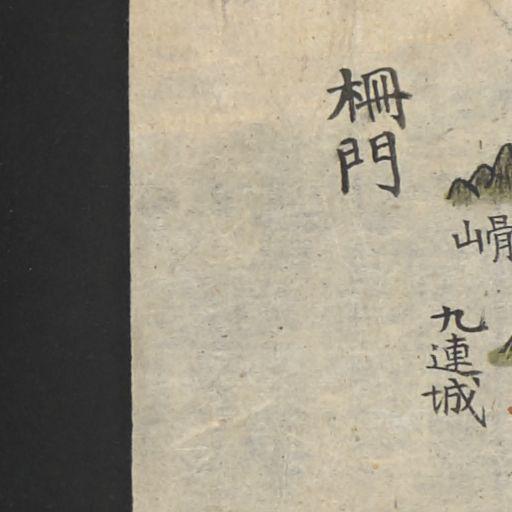 柵門
山
九連城